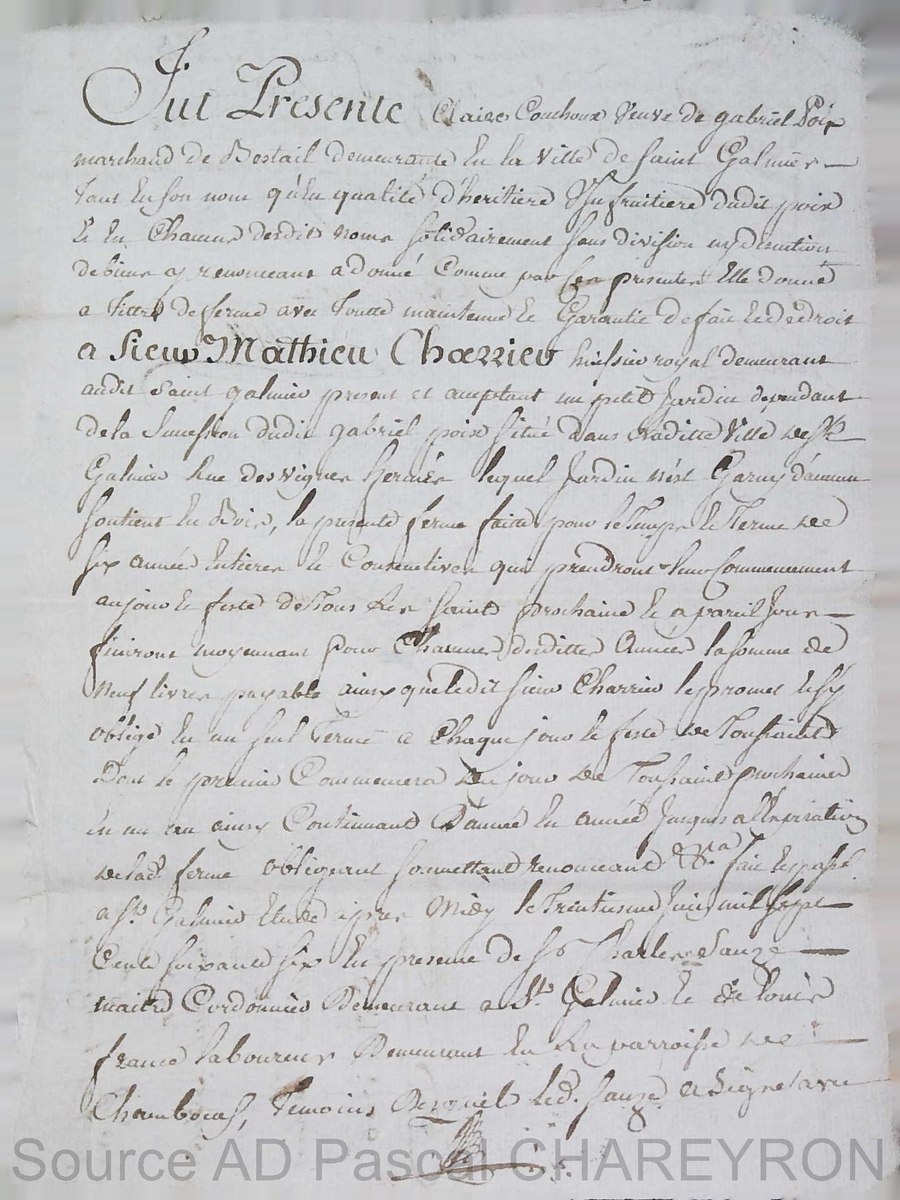 Fut Presente Claire Couhoux veuve de gabriel Poix
marchand de Bestail demeurante en la ville de saint Galmier
tant en son nom qu'en qualité d'heritiere Usufruitiere dudit poix
et en Chacune desdits noms solidairement sans division ny discution
de biens y renonceant a donné Comme par ses presentes Elle donne
a tittre de ferme avec toutte maintenue et Garantie de fait et de droit
a Sieur Mathieu Charrieu huissier royal demeurant
audit saint galmier present et aceptant un petit Jardin dependant
de la sucession dudit gabriel poix situé dans laditte ville de St
Galmier Rue des vignes lequel Jardin n'est Garny d'aucun
soutient en Bois, la presente ferme faite pour le temps et terme de
six année entieres et Consecutives qui prendront leur Commencement
au jour et feste de Tous Les saint prochaine et a pareil Jour
finiront moyennant pour Chacunes desdittes Années la somme de
neuf livres payable ainsy que ledit sieur Charrieu le promet et s'y
oblige en un seul terme a Chaque jour et feste de Toussaint
Dont le premier Commencera du jour de Toussaint prochaine
en un an ainsy Continuant D'année en année Jusques a l'expiration
de lad. ferme obligeant soumettant renonceant &a. fait et passé
a St Galmier Etude après Midy le Trentieme Juin mil sept
Cents soixante six En presence de sr Charles Sauze
maitre Cordonnier Demeurant a St. Galmier et de
france laboureur Demeurant en La parroisse de
Chambœuf, Temoins Desquel led. sauze a signé avec
Source AD Pascal CHAREYRON